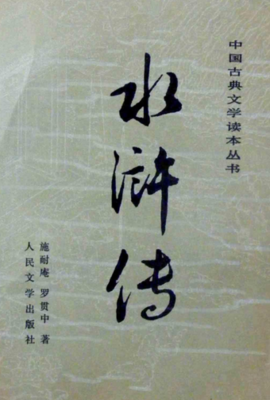 中国古典文学读本丛书
水浒传
施耐庵 罗贯中 著
人民文学出版社